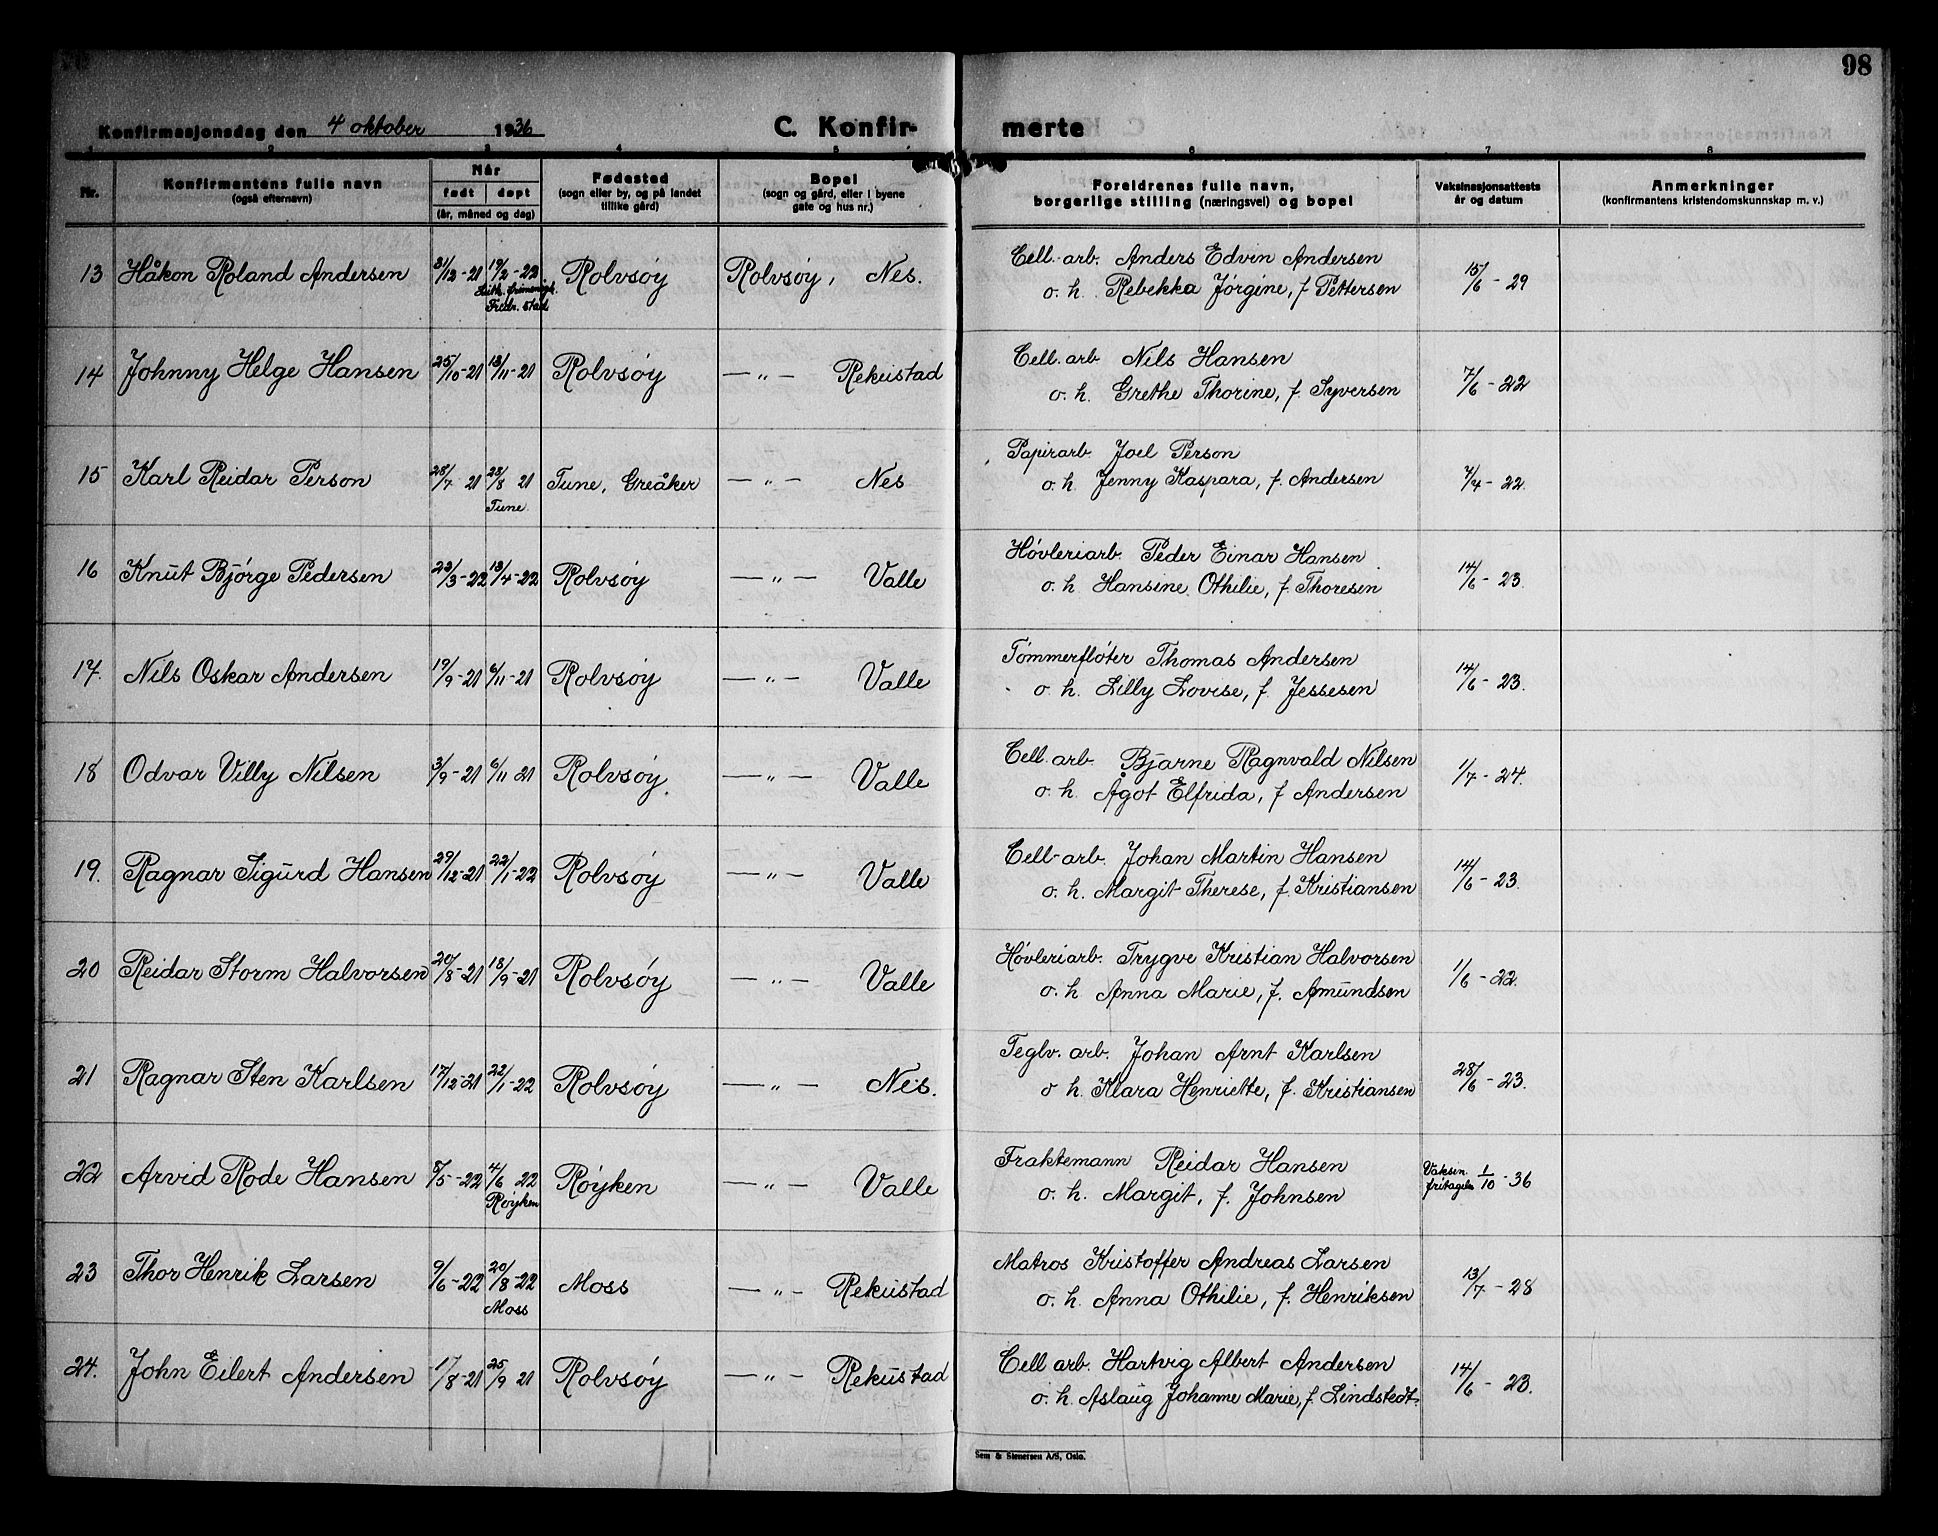 98
Konfirmasjonsdag den 4 oktober 1936 C. Konfir- merte
1 2 3 4 5 6 7 8
Nr. Konfirmantens fulle navn (også efternavn) Når født døpt (år, måned og dag) Fødested (sogn eller by, og på landet tillike gård) Bopel (sogn og gård, eller i byene gate og hus nr.) Foreldrenes fulle navn, borgerlige stilling (næringsvei) og bopel Vaksinasjonsattests år og datum Anmerkninger (konfirmantens kristendomskunnskap m. v.)
13 Håkon Roland Andersen 31/12-21 19/2-22 Fredr. stad Rolvsøy Rolvsøy, Nes. Cell.-arb. Anders Edvin Andersen
o. h. Rebekka Jørgine, f. Pettersen 15/6-29
14 Johnny Helge Hansen 25/10-21 13/11-21 Rolvsøy — " — Rekustad Cell. arb. Nils Hansen
o. h. Grethe Thorine, f. Syversen 7/6-22
15 Karl Reidar Person 28/7 21 28/8 21 Tune Tune, Greåker — " — Nes Papirarb. Joel Person
o. h. Jenny Kaspara, f. Andersen 7/4-22.
16 Knut Bjørge Pedersen 23/3-22 13/4-22 Rolvsøy — " — Valle Høvleriarb. Peder Einar Hansen
o. h. Hansine Othilie, f. Thoresen 14/6-23.
17. Nils Oskar Andersen 19/9-21 6/11-21 Rolvsøy — " — Valle Tømmerfløter Thomas Andersen
o. h. Lilly Lovise, f. Jessesen 14/6-23.
18 Odvar Villy Nilsen 3/9-21 6/11 21 Rolvsøy. — " — Valle Cell. arb. Bjarne Ragnvald Nilsen
o. h. Ågot Elfrida, f. Andersen 1/7-24.
19. Ragnar Sigurd Hansen 29/12-21 22/1-22 Rolvsøy — " — Valle Cell-arb. Johan Martin Hansen
o. h. Margit Therese, f. Kristiansen 14/6-23.
20 Reidar Storm Halvorsen 20/8-21 18/9-21 Rolvsøy — " — Valle Høvleriarb. Trygve Kristian Halvorsen
o. h. Anna Marie, f. Amundsen 1/6-22.
21 Ragnar Sten Karlsen 17/12-21 22/1-22 Rolvsøy — " — Nes. Teglv. arb. Johan Arnt Karlsen
o h. Klara Henriette, f. Kristiansen 28/6-23.
22 Arvid Rode Hansen 8/5-22 4/6 22 Røyken Røyken — " — Valle Fraktemann Reidar Hansen
o. h. Margit, f. Johnsen Vaksin. fritagelse 1/10-36
23 Thor Henrik Larsen 9/6-22 20/8-22 Moss Moss — " — Rekustad Matros Kristoffer Andreas Larsen
o. h. Anna Othilie, f. Henriksen 13/7-28
24. John Eilert Andersen 17/8-21 25/9 21 Rolvsøy — " — Rekustad Cell arb. Hartvig Albert Andersen
o. h. Aslaug Johanne Marie, f. Lindstedt. 14/6-23.
Sem & Stenersen A/S, Oslo.